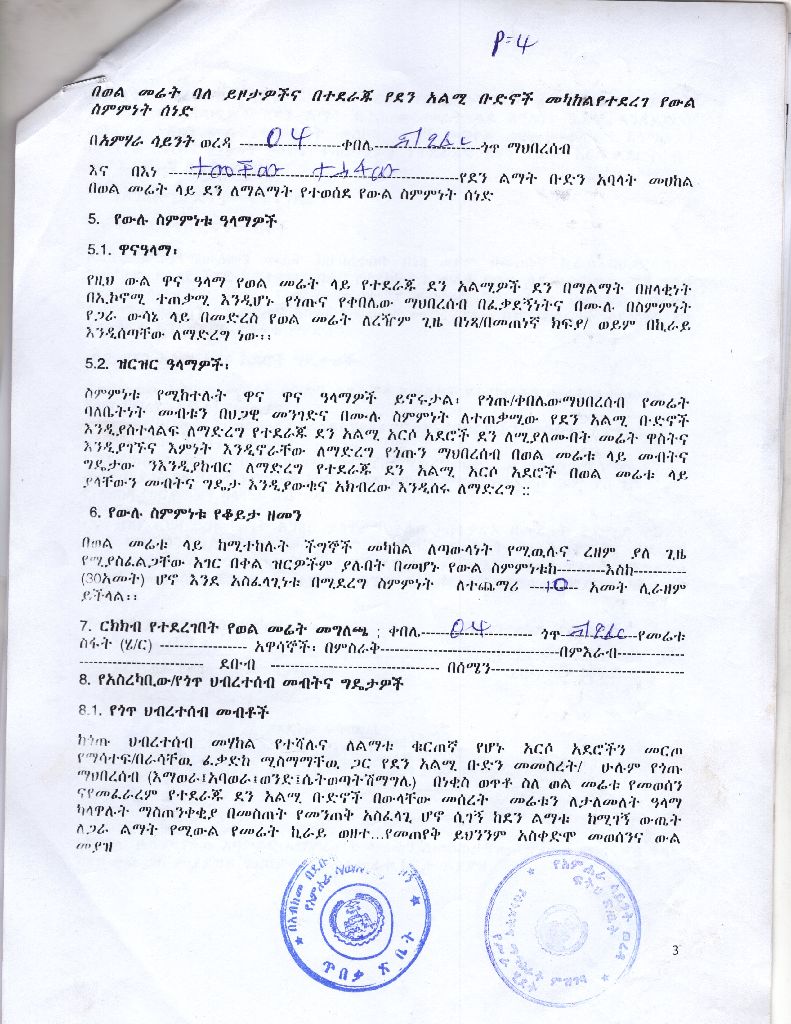 P=4
በወል መሬት ባለ ይዞታዎችና በተደራጁ የደን አልሚ ቡድኖች መካከልየተደረገ የውል
ስምምነት ሰነድ
በአምሃራ ሳይንት ወረዳ ------- 04 -------ቀበሌ--------ጎጥ ማህበረሰብ
እና በእነ ---------------የደን ልማት ቡድን አባላት መሀከል
በወል መሬት ላይ ደን ለማልማት የተወሰደ የውል ስምምነት ሰነድ
5. የውሉ ስምምነቱ ዓላማዎች
5.1. ዋናዓላማ፡
የዚህ ውል ዋና ዓላማ የወል መሬት ላይ የተደራጁ ደን አልሚዎች ደን በማልማት በዘላቂነት
በኢኮኖሚ ተጠቃሚ እንዲሆኑ የጎጡና የቀበሌው ማህበረሰብ በፈቃደኝነትና በሙሉ በስምምነት
የጋራ ውሳኔ ላይ በመድረስ የወል መሬት ለረዥም ጊዜ በነጻ/በመጠነኛ ክፍያ/ ወይም በኪራይ
እንዲሰጣቸው ለማድረግ ነው፡፡
5.2. ዝርዝር ዓላማዎች፡
ስምምነቱ የሚከተሉት ዋና ዋና ዓላማዎች ይኖሩታል፡ የጎጡ/ቀበሌውማህበረሰብ የመሬት
ባለቤትነት መብቱን በህጋዊ መንገድና በሙሉ ስምምነት ለተጠቃሚው የደን አልሚ ቡድኖች
እንዲያስተላልፍ ለማድረግ የተደራጁ ደን አልሚ አርሶ አደሮች ደን ለሚያለሙበት መሬት ዋስትና
እንዲያገኙና እምነት እንዲኖራቸው ለማድረግ የጎጡን ማህበረሰብ በወል መሬቱ ላይ መብትና
ግዴታው ንእንዲያከብር ለማድረግ የተደራጁ ደን አልሚ አርሶ አደሮች በወል መሬቱ ላይ
ያላቸውን መብትና ግዴታ እንዲያውቁና አክብረው እንዲሰሩ ለማድረግ ::
6. የውሉ ስምምነቱ የቆይታ ዘመን
በወል መሬቱ ላይ ከሚተከሉት ችግኞች መካከል ለጣውላነት የሚዉሉና ረዘም ያለ ጊዜ
የሚያስፈልጋቸው አገር በቀል ዝርዎችም ያሉበት በመሆኑ የውል ስምምነቱከ----------እስከ-----------
(30አመት) ሆኖ እንደ አስፈላጊነቱ በሚደረግ ስምምነት ለተጨማሪ ---10-- አመት ሊራዘም
ይችላል፡፡
7. ርክክብ የተደረገበት የወል መሬት መግለጫ ; ቀበሌ------04------------- ጎጥ --------የመሬቱ
ስፋት (ሄ/ር) ------------------ አዋሳኞች፡ በምስራቅ------------------------------------በምእራብ--------------
------------------------- ደቡብ ----------------------------------- በሰሜን----------------------------------------
8. የአስረካቢው/የጎጥ ህብረተሰብ መብትና ግዴታዎች
8.1. የጎጥ ህብረተሰብ መብቶች
ከጎጡ ህብረተሰብ መሃከል የተሻሉና ለልማቱ ቁርጠኛ የሆኑ አርሶ አደሮችን መርጦ
የማሳተፍ/በራሳቸዉ ፈቃድክ ሚስማማቸዉ ጋር የደን አልሚ ቡድን መመስረት/ ሁሉም የጎጡ
ማህበረሰብ (አማወራ፤አባወራ፤ወንድ፤ሴትወጣትሽማግሌ) በነቂስ ወጥቶ ስለ ወል መሬቱ የመወሰን
ናየመፈራረም የተደራጁ ደን አልሚ ቡድኖች በውላቸው መሰረት መሬቱን ለታለመለት ዓላማ
ካላዋሉት ማስጠንቀቂያ በመስጠት የመንጠቅ አስፈላጊ ሆኖ ሲገኝ ከደን ልማቱ ከሚገኝ ውጤት
ለጋራ ልማት የሚውል የመሬት ኪራይ ወዘተ...የመጠየቅ ይህንንም አስቀድሞ መወሰንና ውል
መያዝ
ጥበቃ ጽ ቤት
3